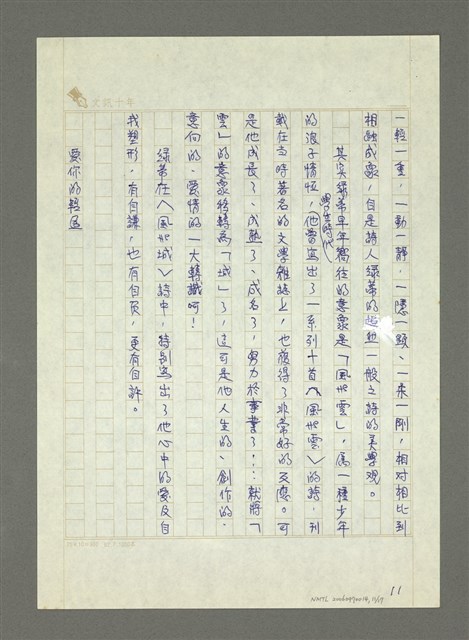 一輕一重，一動一靜，一隱一顯、一柔一剛，相対相比到
相融成象，自是詩人綠蒂的超越一般之詩的美學观。
其实綠蒂早年嚮往的意象是「風與雲」，属一種少年
的浪子情怀，他當學生時代寫出了一系列十首〈風與雲〉的詩，刊
載在当時著名的文學雜誌上，也獲得了非常好的反應。可
是他成長了、成熟了、成名了，努力於事業了……就將「
雲」的意象移轉為「城」了，這可是他人生的、創作的、
意向的、愛情的一大轉識呵！
綠蒂在〈風與城〉詩中，特別寫出了他心中的愛及自
我塑形，有自謙，也有自負，更有自許。
愛你的輕逸
文訊十年
11